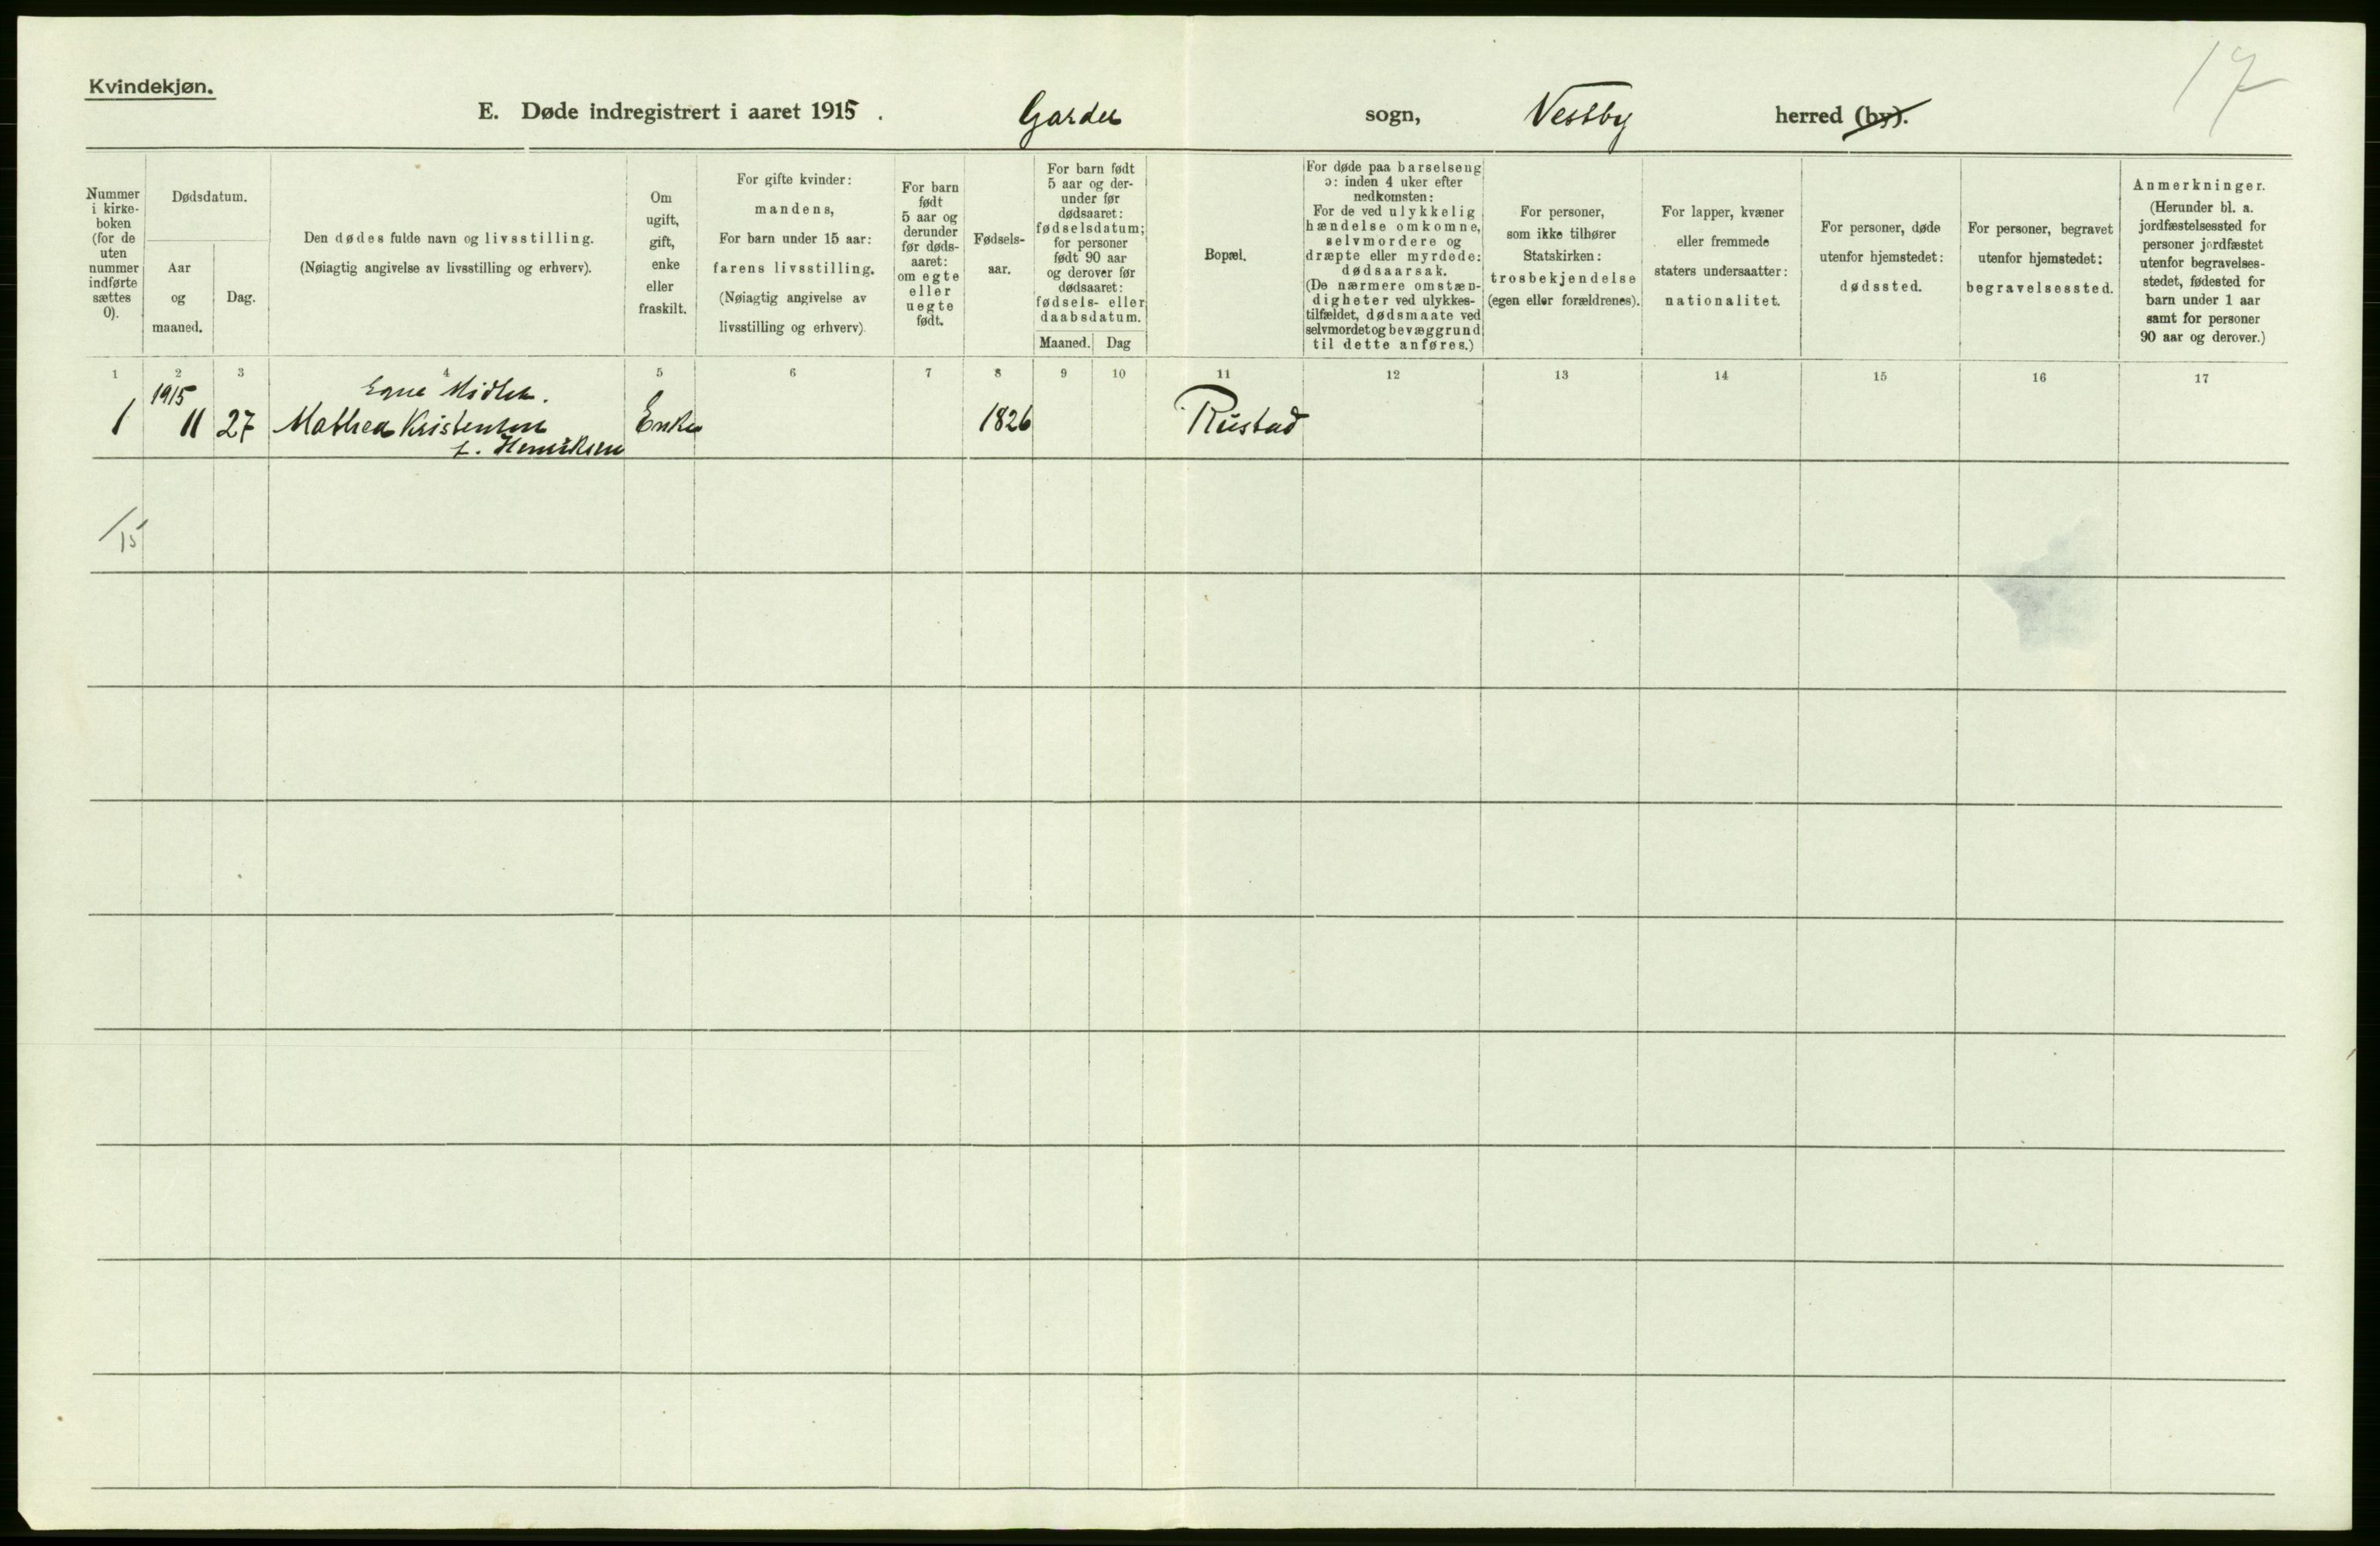 Kvindekjøn.
17
E. Døde indregistrert i aaret 1915. Garder sogn, Vestby herred (by).
Nummer i kirke-
boken
(for de
uten
nummer
indførte
sættes
0).
Dødsdatum.
Aar
og
maaned.
Dag.
Den dødes fulde navn og livsstilling.
(Nøiagtig angivelse av livsstilling og erhverv).
Om
ugift,
gift,
enke
eller
fraskilt.
For gifte kvinder:
mandens,
For barn under 15 aar:
farens livsstilling.
(Nøiagtig angivelse av
livsstilling og erhverv).
For barn
født
5 aar og
derunder
før døds-
aaret:
om egte
eller
uegte
født.
Fødsels-
aar.
For barn født
5 aar og der-
under før
dødsaaret:
fødselsdatum;
for personer
født 90 aar
og derover før
dødsaaret:
fødsels- eller
daabsdatum.
Maaned. Dag
Bopæl.
For døde paa barselseng
ɔ: inden 4 uker efter
nedkomsten:
For de ved ulykkelig
hændelse omkomne,
selvmordere og
dræpte eller myrdede:
dødsaarsak.
(De nærmere omstæn-
digheter ved ulykkes-
tilfældet, dødsmaate ved
selvmordet og bevæggrund
til dette anføres.)
For personer,
som ikke tilhører
Statskirken:
trosbekjendelse
(egen eller forældrenes).
For lapper, kvæner
eller fremmede
staters undersaatter:
nationalitet.
For personer, døde
utenfor hjemstedet:
dødssted.
For personer, begravet
utenfor hjemstedet:
begravelsessted.
Anmerkninger.
(Herunder bl. a.
jordfæstelsessted for
personer jordfæstet
utenfor begravelses-
stedet, fødested for
barn under 1 aar
samt for personer
90 aar og derover.)
1 2 3 4 5 6 7 8 9 10 11 12 13 14 15 16 17
1915 Egne Midler.
1 11 27 Mathea Kristensen Enke 1826 Rustad
f. Henriksen
/15